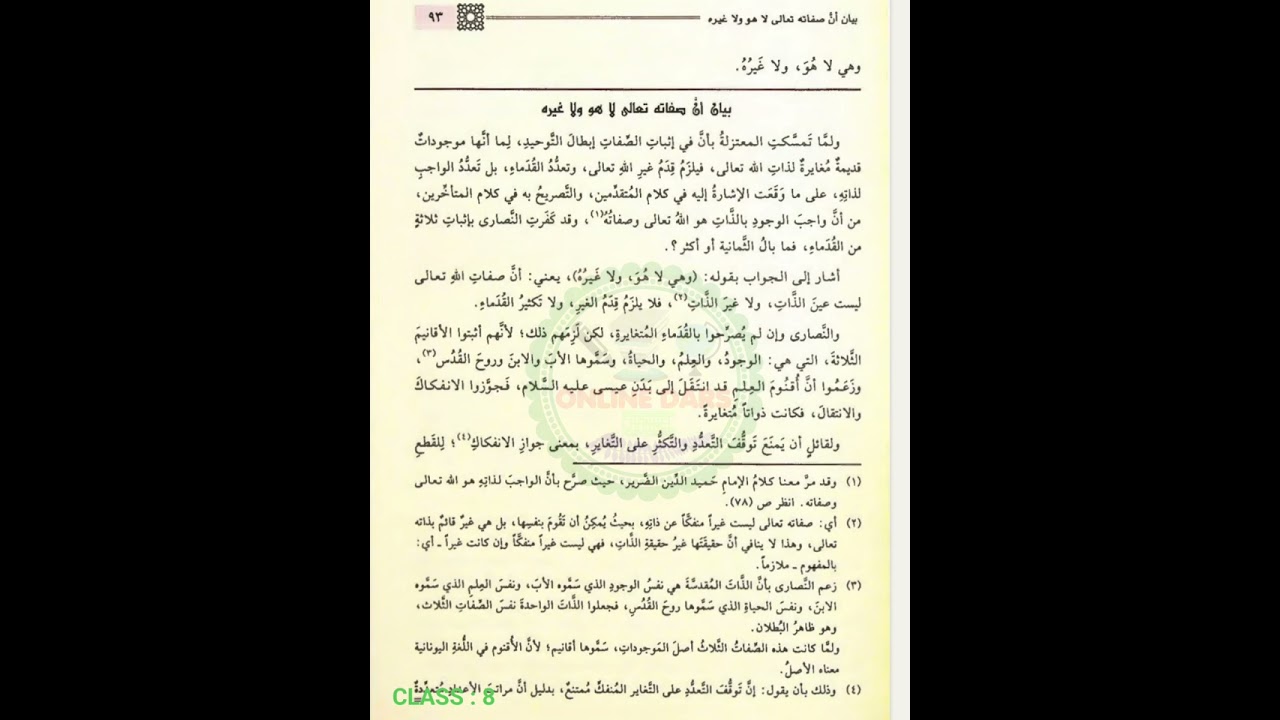 بيان أنَّ صفاته تعالى لا هو ولا غيره
٩٣
وهي لا هُوَ، ولا غَيرُهُ.
بيان أن صفاته تعالى لا هو ولا غيره
ولمَّا تَمسَّكتِ المعتزلةُ بأنَّ في إثباتِ الصِّفاتِ إبطالَ التَّوحيدِ، لِما أنَّها موجوداتٌ
قديمةٌ مُغايرةٌ لذاتِ الله تعالى، فيلزَمُ قِدَمُ غيرِ اللهِ تعالى، وتعدُّدُ القُدَماءِ، بل تَعدُّدُ الواجبِ
لذاتِهِ، على ما وَقَعَت الإشارةُ إليه في كلام المُتقدِّمين، والتَّصريحُ به في كلام المتأخِّرين،
من أنَّ واجبَ الوجودِ بالذَّاتِ هو اللهُ تعالى وصفاتُهُ(١)، وقد كَفَرتِ النَّصارى بإثباتِ ثلاثةٍ
من القُدَماءِ، فما بالُ الثَّمانية أو أكثر؟.
أشار إلى الجواب بقوله: (وهي لا هُوَ، ولا غَيرُهُ)، يعني: أنَّ صفاتِ اللهِ تعالى
ليست عينَ الذَّاتِ، ولا غيرَ الذَّاتِ(٢)، فلا يلزَمُ قِدَمُ الغيرِ، ولا تَكثيرُ القُدَماءِ.
والنَّصارى وإن لم يُصرِّحوا بالقُدَماءِ المُتغايرةِ، لكن لَزِمَهم ذلك؛ لأنَّهم أثبتوا الأقانيمَ
الثَّلاثةَ، التي هي: الوجودُ، والعِلمُ، والحياةُ، وسَمَّوها الأبَ والابنَ وروحَ القُدُس(٣)،
وزَعَمُوا أنَّ أُقنُومَ العِلمِ قد انتَقَلَ إلى بَدَنِ عيسى عليه السَّلام، فَجوَّزوا الانفكاكَ
والانتقالَ، فكانت ذواتاً مُتغايرةً.
ولقائلٍ أن يَمنَعَ تَوقُّفَ التَّعدُّدِ والتَّكثُّرِ على التَّغاير، بمعنى جوازِ الانفكاكِ(٤)؛ لِلقَطعِ
ONLINE DARS
(١) وقد مرَّ معنا كلامُ الإمامِ حَميد الدِّين الضَّرير، حيث صرَّح بأنَّ الواجبَ لذاتِهِ هو الله تعالى
وصفاته. انظر ص (٧٨).
(٢) أي: صفاته تعالى ليست غيراً منفكَّاً عن ذاتِهِ، بحيثُ يُمكِنُ أن تَقُومَ بنفسِها، بل هي غيرٌ قائمٌ بذاته
تعالى، وهذا لا ينافي أنَّ حقيقَتَها غيرُ حقيقةِ الذَّات، فهي ليست غيراً منفكَّاً وإن كانت غيراً ـ أي:
بالمفهوم ـ ملازماً.
(٣) زعم النَّصارى بأنَّ الذَّاتَ المُقدسَّةَ هي نفسُ الوجودِ الذي سَمَّوه الأبَ، ونفسُ العِلمِ الذي سَمَّوه
الابنَ، ونفسُ الحياةِ الذي سَمَّوها روحَ القُدُسِ، فجعلوا الذَّاتَ الواحدةَ نفسَ الصِّفَاتِ الثَّلاث،
وهو ظاهرُ البُطلان.
ولمَّا كانت هذه الصِّفاتُ الثَّلاثُ أصلَ المَوجوداتِ، سَمَّوها أقانيم؛ لأنَّ الأُقنوم في اللُّغةِ اليونانية
معناه الأصلُ.
(٤) وذلك بأن يقول: إنَّ تَوقُّفَ التَّعدُّدِ على التَّغاير المُنفكِّ مُمتنعٌ، بدليل أنَّ مراتبَ الأعدادِ مُتعدِّدةٌ
CLASS : 8